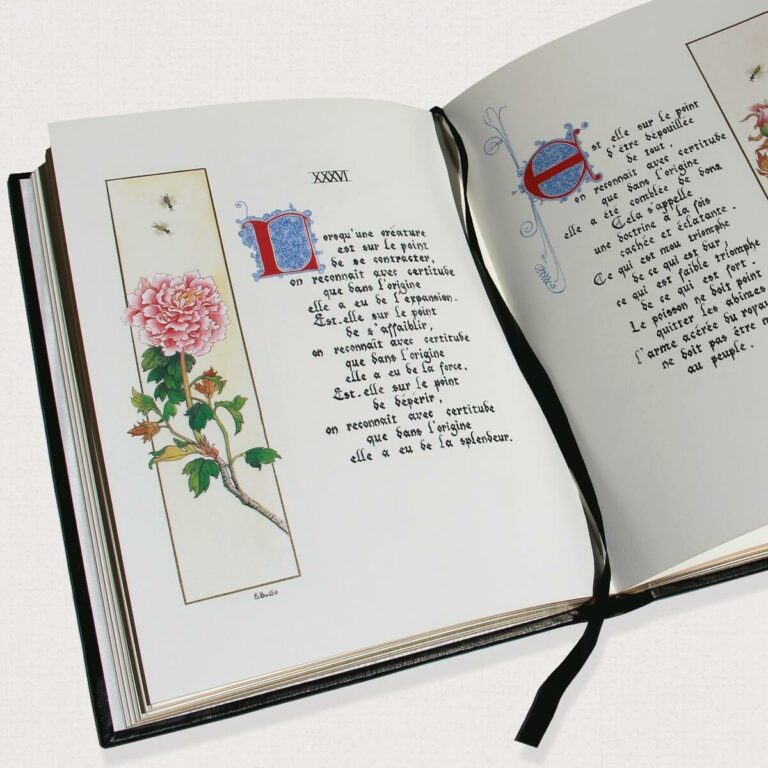 XXXVI
Lorsqu'une créature
est sur le point
de se contracter,
on reconnaît avec certitude
que dans l'origine
elle a eu de l'expansion.
Est-elle sur le point
de s'affaiblir,
on reconnaît avec certitude
que dans l'origine
elle a eu de la force.
Est-elle sur le point
de dépérir,
on reconnaît avec certitude
que dans l'origine
elle a eu de la splendeur.
Est elle sur le point
d'être dépouillée
de tout,
on reconnaît avec certitude
que dans l'origine
elle a été comblée de dons
Cela s'appelle
une doctrine à la fois
cachée et éclatante.
Ce qui est mou triomphe
de ce qui est dur,
ce qui est faible triomphe
de ce qui est fort.
Le poisson ne doit point
quitter les abîmes
l'arme acérée du
ne doit pas être
au peuple.